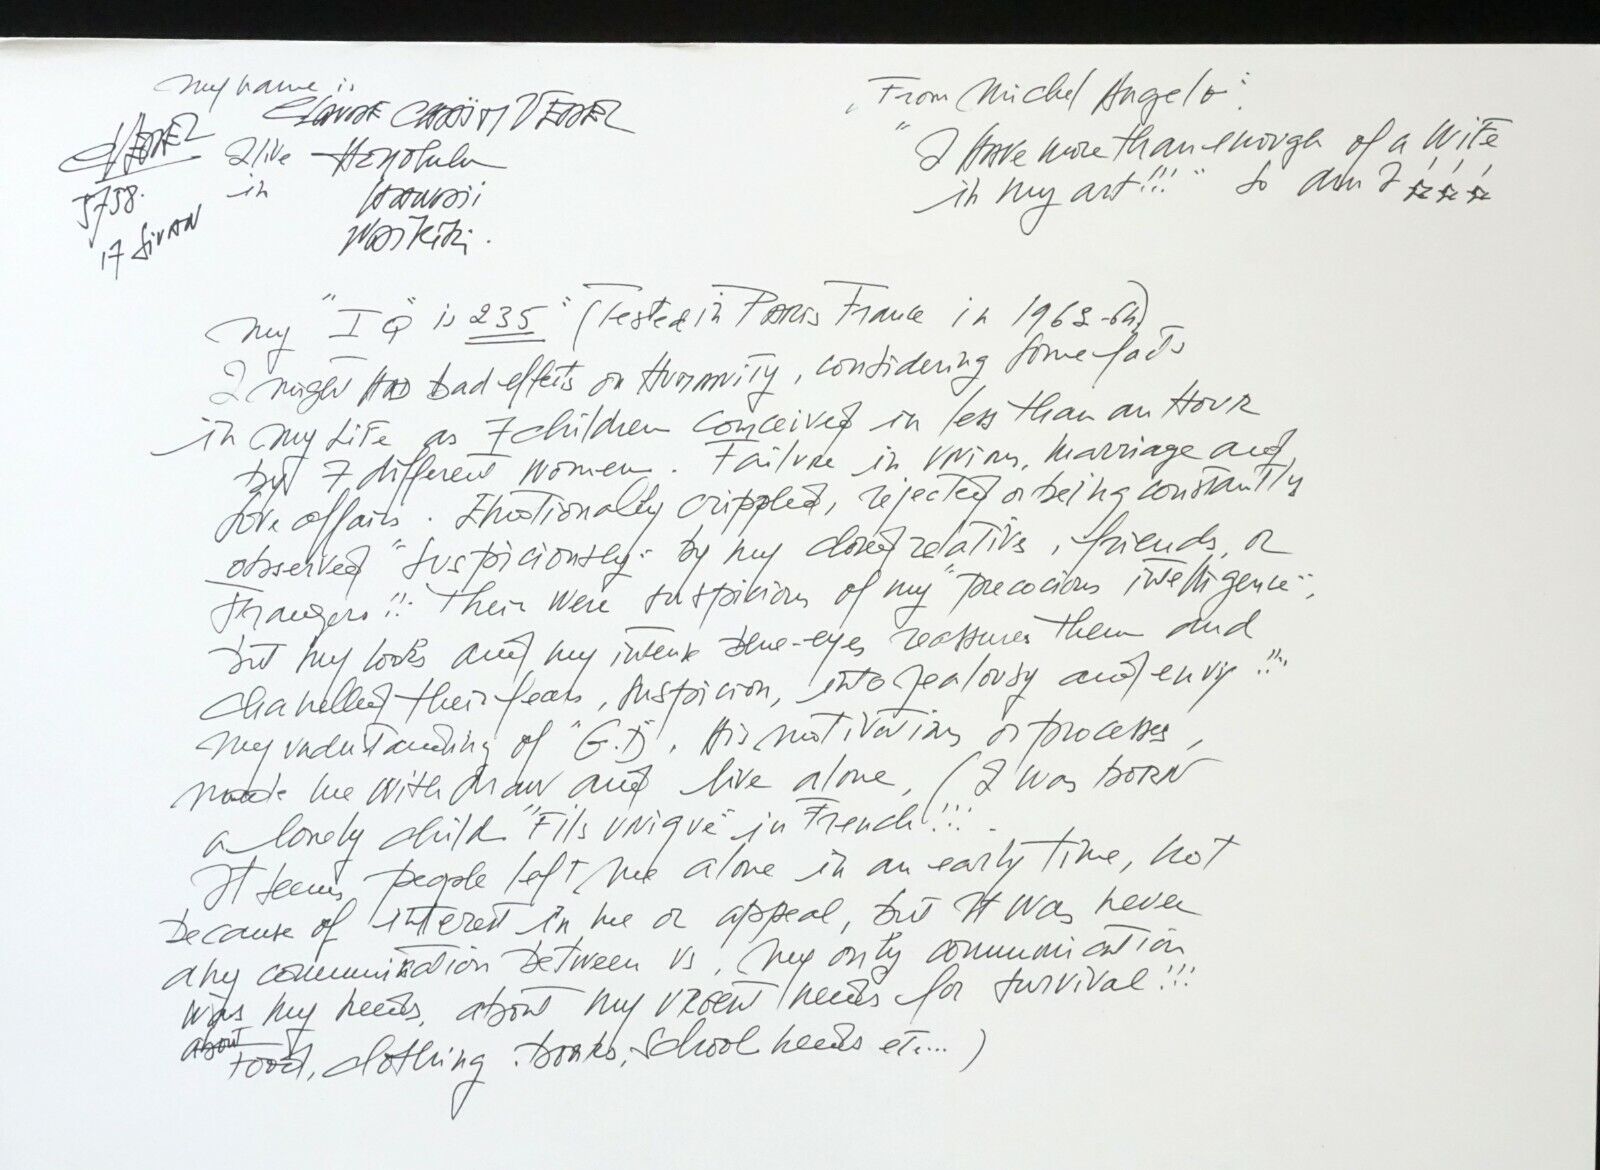 my name is
CLAUDE VEDEL
VEDEL
5758.
17 SIVAN
I live Honolulu
in Hawaii
Waikiki.
"From Michel Angelo":
"I Have more than enough of a WiFE
in my art!!!" So am I ☆☆☆
my "IQ" is 235" (Tested in Paris France in 1963-64)
I might HAD bad effects on Humanity, considering Some facts
in my LiFE as 7 children conceived in less than an HOUR
by 7 different women. Failure in unions, marriage and
love affairs. Emotionally crippled, rejected or being constantly
observed "suspiciously" by my closed relatives, friends, or
strangers!!! Their were suspicions of my "precocious intelligence",
but my looks and my intense blue-eyes reassures them and
chanelled their fears, suspicion, into jealousy and envy!!!
my understanding of "G.D", His motivations or processes,
made me withdraw and live alone, (I was BORN
a lonely child "Fils unique" in French!!!.
It seems people left me alone in an early time, not
because of interest in me or appeal, but It was never
any communication between us, my only communication
was my needs, about my URGENT needs for survival!!!
about food, clothing, books, School needs etc...)